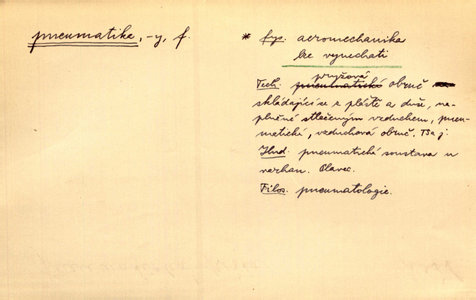 pneumatika, -y, f.
* fys. aeromechanika
lze vynechati
pryžová
Tech. pneumatická obruč
skládající se z pláště a duše, na-
plněné stlačeným vzduchem, pneu-
matická, vzduchová obruč. TSaj.
Hud. pneumatická soustava u
varhan. Olavec.
Filos. pneumatologie.